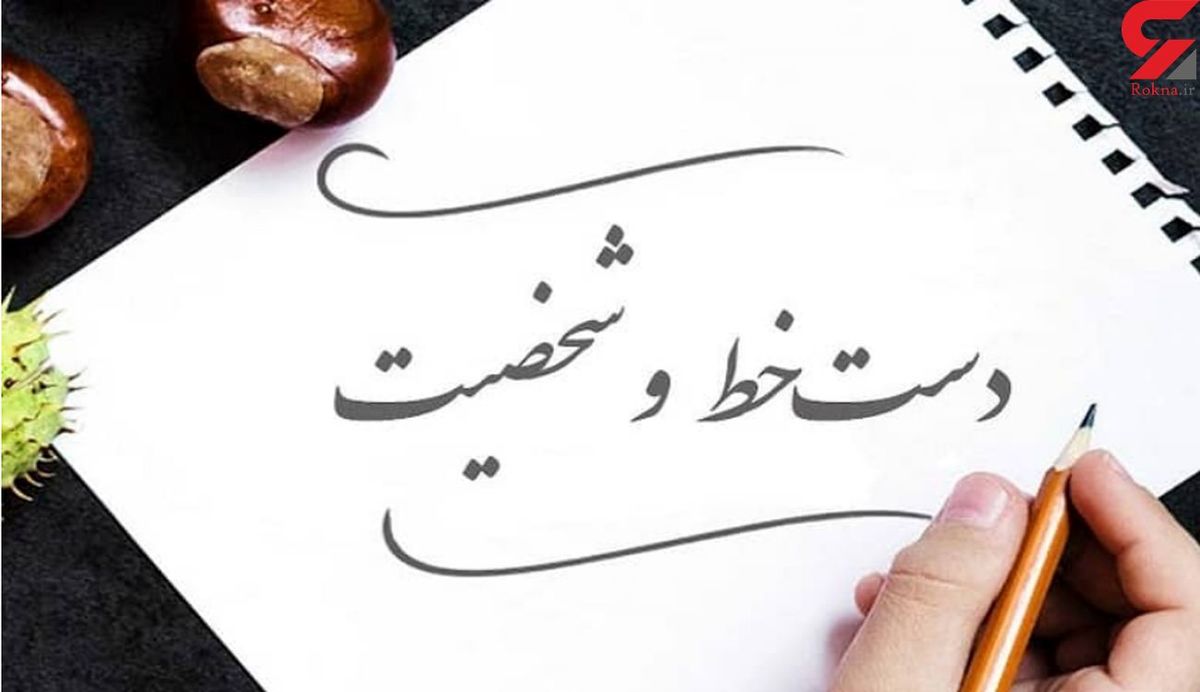 Rokna.ir
دست‌خط و شخصیت